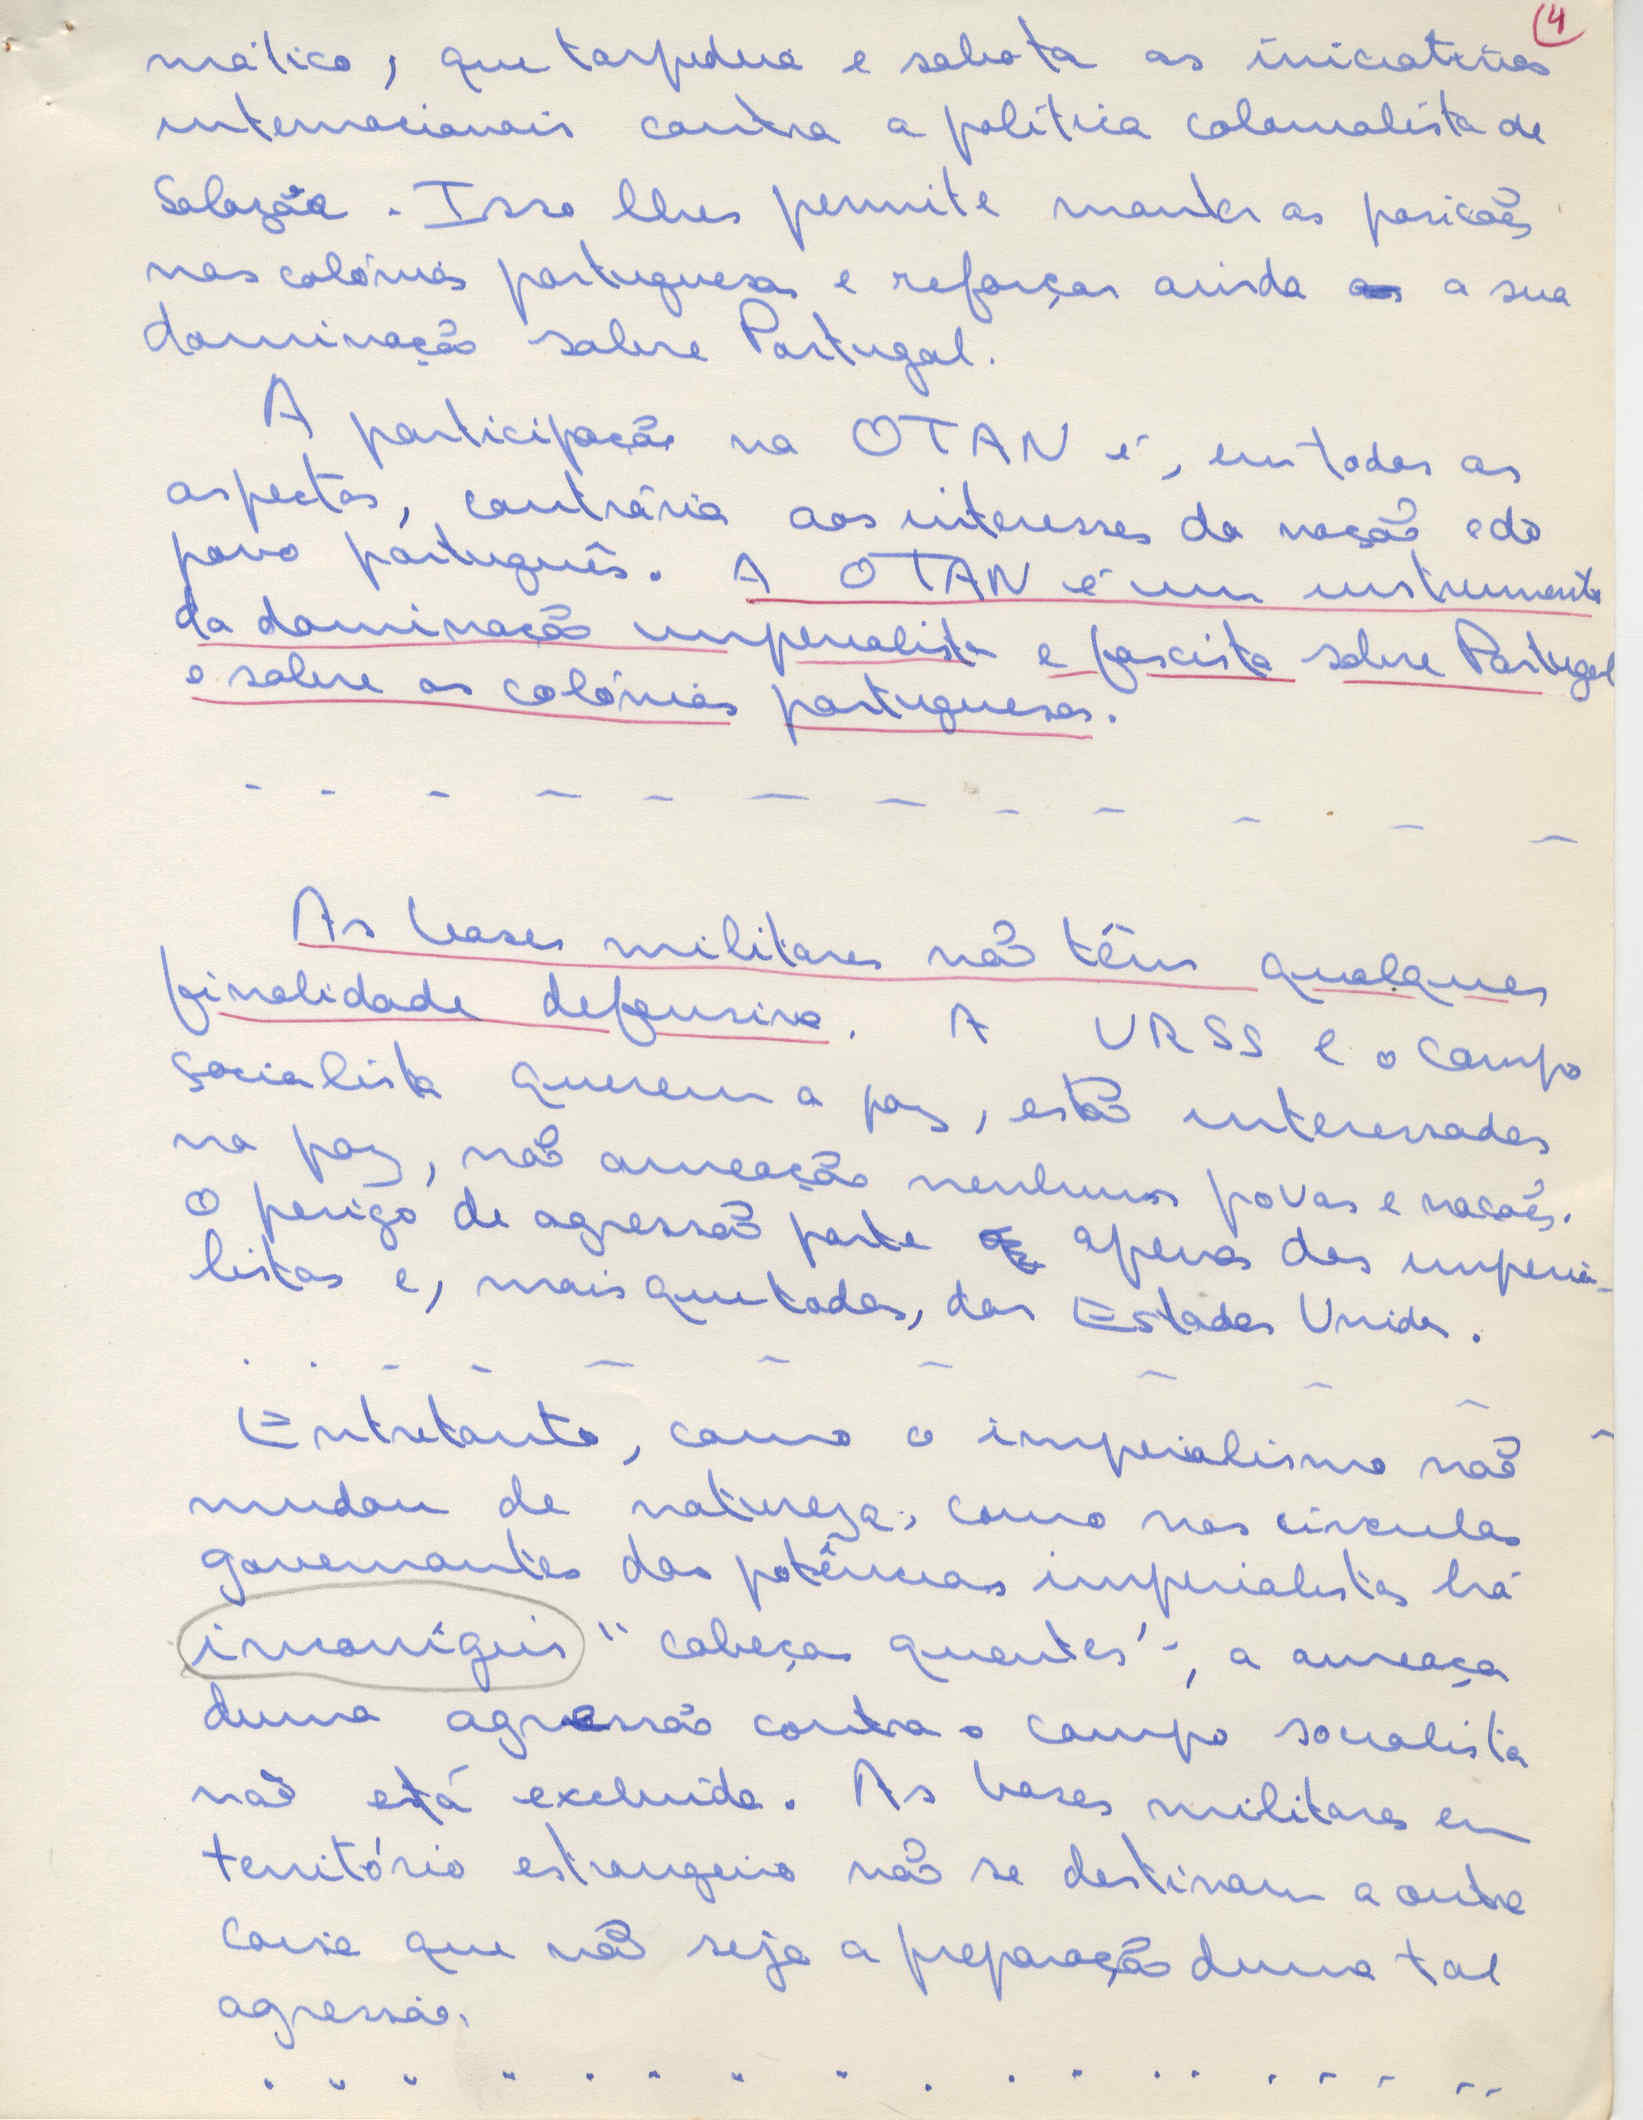 4
mático, que torpedeia e sabota as iniciativas
internacionais contra a política colonialista de
Salazar. Isso lhes permite manter as posições
nas colónias portuguesas e reforçar ainda a sua
dominação sobre Portugal.
A participação na OTAN é, em todos os
aspectos, contrária aos interesses da nação e do
povo português. A OTAN é um instrumento
da dominação imperialista e fascista sobre Portugal
e sobre as colónias portuguesas.
As bases militares não têm qualquer
finalidade defensiva. A URSS e o campo
socialista querem a paz, estão interessados
na paz, não ameação nenhuns povos e nações.
O perigo de agressão parte apenas dos imperia-
listas e, mais que todos, dos Estados Unidos.
Entretanto, como o imperialismo não
mudou de natureza, como nos círculos
governantes das potências imperialistas há
"cabeças quentes", a ameaça
duma agressão contra o campo socialista
não está excluída. As bases militares em
território estrangeiro não se destinam a outra
coisa que não seja a preparação duma tal
agressão.